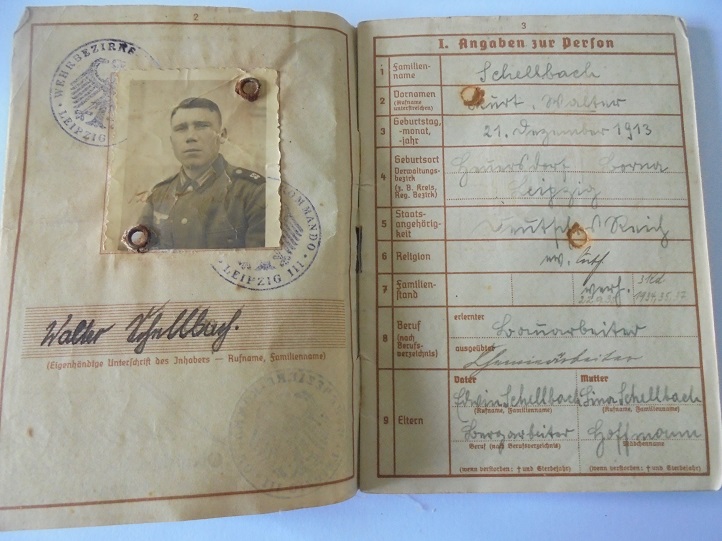 2
WEHRBEZIRKS
LEIPZIG
KOMMANDO
LEIPZIG III
Walter Schellbach.
(Eigenhändige Unterschrift des Inhabers — Rufname, Familienname)
3
I. Angaben zur Person
1 Familienname Schellbach
2 Vornamen (Rufname unterstreichen) Kurt, Walter
3 Geburtstag, -monat, -jahr 21. Dezember 1913
4 Geburtsort Verwaltungsbezirk (z. B. Kreis, Reg. Bezirk) Heuersdorf Borna
Leipzig
5 Staatsangehörigkeit Deutsches Reich
6 Religion ev. luth
7 Familienstand verh.
8 Beruf (nach Berufsverzeichnis) erlernter
Bauarbeiter
ausgeübter
Chemiearbeiter
9 Eltern
Vater Mutter
Edwin Schellbach Lina Schellbach
(Rufname, Familienname) (Rufname, Familienname)
Bergarbeiter Hoffmann
Beruf (nach Berufsverzeichnis) Mädchenname
(wenn verstorben: † und Sterbejahr) (wenn verstorben: † und Sterbejahr)